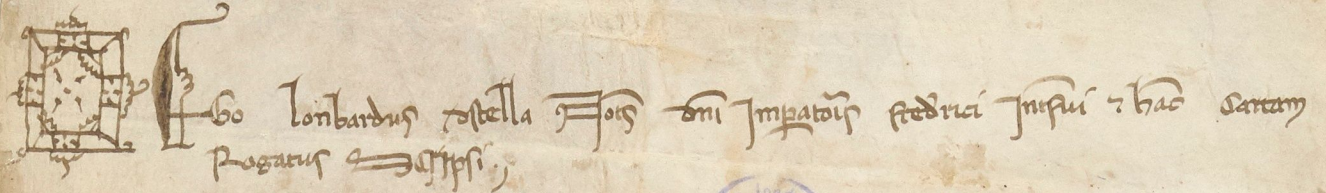 Ego lonbardus costella Not̄s dn̄i Imp̱ator̄is frederici Int̄fui ⁊ hāc Cartam
Rogatus Sc̱ripsi.,